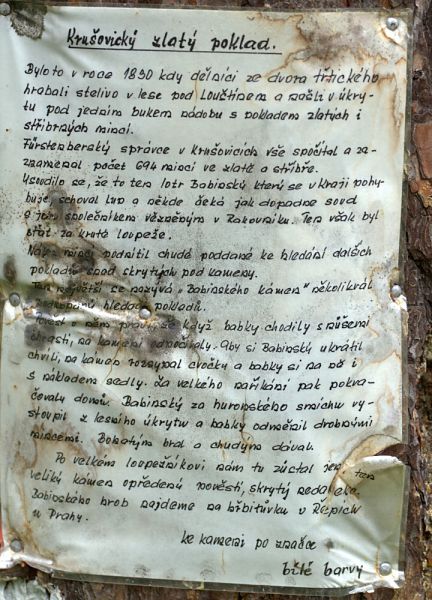 Krušovický zlatý poklad.
Bylo to v roce 1830 kdy dělníci ze dvora třtického
hrabali stelivo v lese pod Louštínem a našli v úkry-
tu pod jedním bukem nádobu s pokladem zlatých i
stříbrných mincí.
Fürstenberský správce v Krušovicích vše spočítal a za-
znamenal počet 694 mincí ve zlatě a stříbře.
Usoudilo se, že to ten lotr Babinský, který se v kraji pohy-
buje, schoval lup a někde čeká jak dopadne soud
s jeho společníkem vězněným v Rakovníku. Ten však byl
sťat za kruté loupeže.
Nález mincí podnítil chudé poddané ke hledání dalších
pokladů snad skrytých pod kameny.
Ten největší se nazývá "Babinského kámen" několikrál
podkopaný hledači pokladů.
Pověst o něm praví, že když babky chodily s nůšemi
chrastí, na kameni odpočívaly. Aby si Babinský ukrátil
chvíli, na kámen rozsypal cvočky a babky si na ně i
s nákladem sedly. Za velkého naříkání pak pokra-
čovaly domů. Babinský za huronského smíchu vy-
stoupil z lesního úkrytu a babky odměnil drobnými
mincemi. Bohatým bral a chudým dával.
Po velkém loupežníkovi nám tu zůstal jen ten
veliký kámen opředený pověstí, skrytý nedaleko.
Babinského hrob najdeme na hřbitůvku v Řepích
u Prahy.
ke kameni po značce
bílé barvy